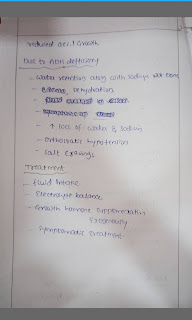 reduced axial Growth
Due to ADH deficiency
- water retention along with sodium
- Edema, Dehydration
- ↑ loss of water & sodium
- Orthostatic hypotension
- Salt cravings
Treatment
- fluid intake
- Electrolyte balance
- Growth hormone Supplementation
Exogenously
- Symptomatic treatment